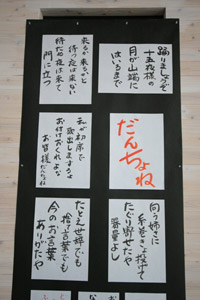 踊りましょうぞ
十五夜様の
月が山端に
はいるまで
来るか来るかと
待つ夜は来ない
待たぬ夜は来て
門に立つ
だんちょね
私が初席で
歌出しまするよ
お付けおくれよな
お皆様
向う姉さに
糸巻き投げて
たぐり寄せたや
器量よし
たとえ世辞でも
捨て言葉でも
今のお言葉
ありがたや